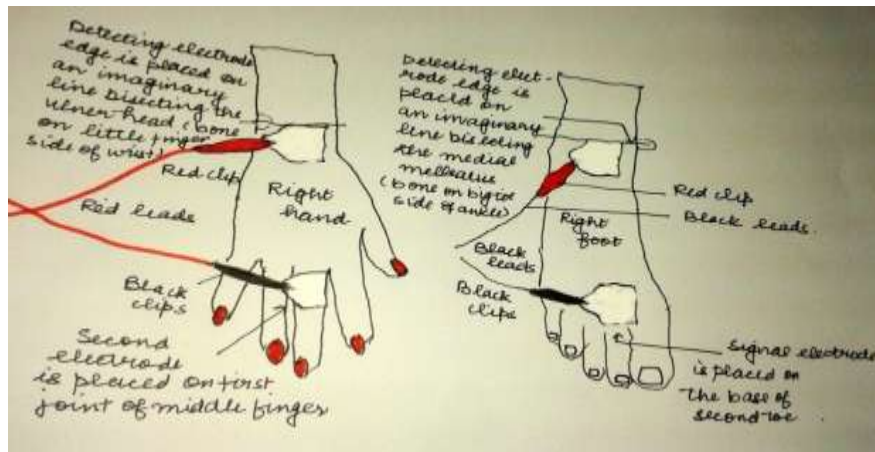 Detecting electrode
edge is placed on
an imaginary
line bisecting the
ulner head (bone
on little finger
side of wrist)
Red clip
Right
hand
Red leads
Black
clips
Second
electrode
is placed on first
joint of middle finger
Detecting elect-
rode edge is
placed on
an imaginary
line bisecting
the medial
melleatus
(bone on big toe
side of ankle)
Red clip
Black leads.
Right
foot
Black
leads
Black
clips
Signal electrode
is placed on
the base of
second toe.